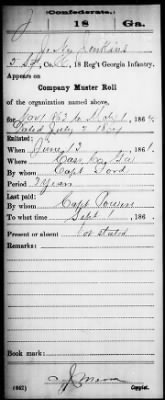 Confederate.
J 18 Ga.
Jenkins
Co. , 18 Reg't Georgia Infantry.
Appears on
Company Muster Roll
of the organization named above,
for Nov 1 1863 to
Dated July 2 1864
Enlisted:
When June 13 186 1.
Where Cass Co Ga
By whom Capt
Period
Last paid:
By whom Capt
To what time Sept 1 186 .
Present or absent Not stated
Remarks:
Book mark:
(642) Copyist.